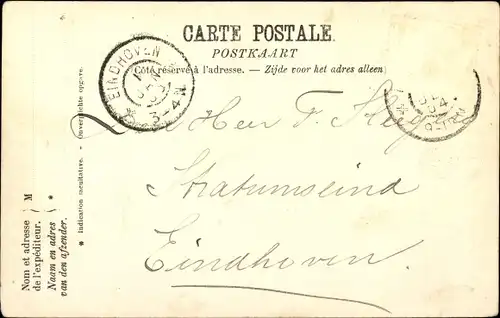 CARTE POSTALE.
POSTKAART
(Côté réservé à l'adresse. — Zijde voor het adres alleen)
EINDHOVEN
3-4 N
Heer F.
Stratumseind
Eindhoven.
Nom et adresse
de l'expéditeur.
M
Naam en adres
van den afzender.
*
* Indication facultative. - Onverplichte opgave.